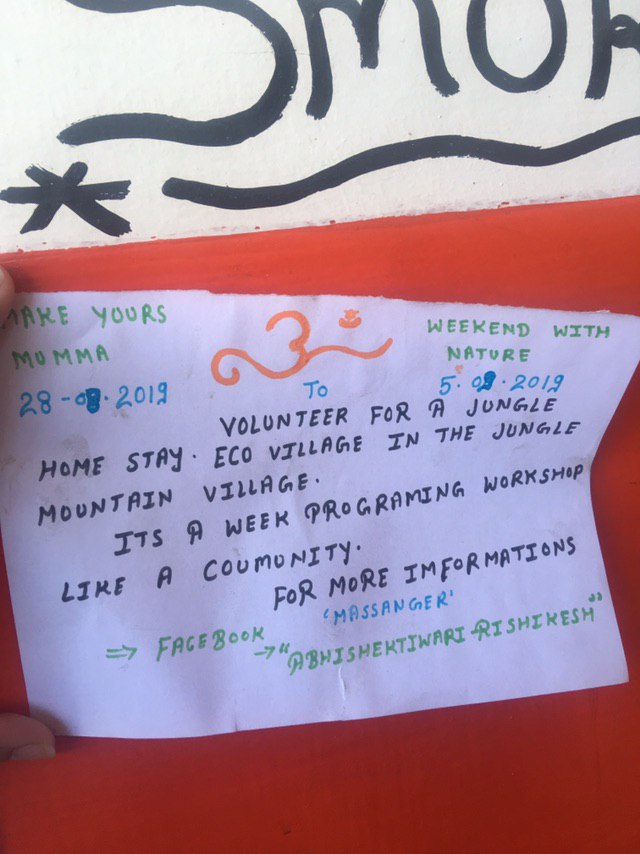 SMOK
*
MAKE YOURS
MUMMA
28-08.2019
ॐ
TO
WEEKEND WITH
NATURE
5.09.2019
VOLUNTEER FOR A JUNGLE
HOME STAY. ECO VILLAGE IN THE JUNGLE
MOUNTAIN VILLAGE.
ITS A WEEK PROGRAMING WORKSHOP
LIKE A COUMUNITY.
FOR MORE IMFORMATIONS
'MASSANGER'
⇒ FACEBOOK → "ABHISHEKTIWARI-RISHIKESH"